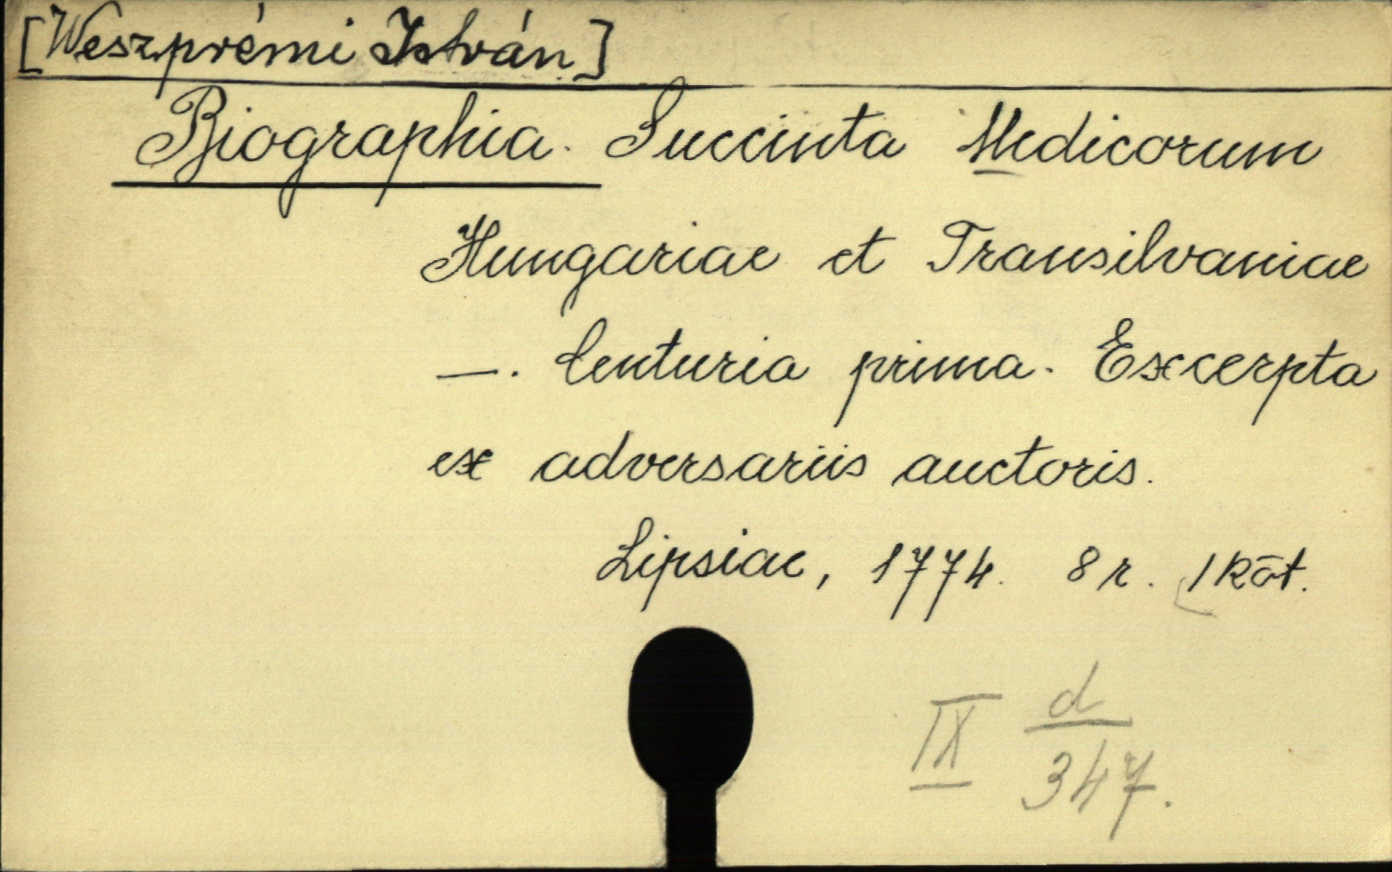 [Weszprémi István]
Biographia. Succinta Medicorum
Hungariae et Transilvaniae
—. Centuria prima. Excerpta
ex adversariis auctoris.
Lipsiae, 1774. 8 r. 1 Köt.
IX d/347.